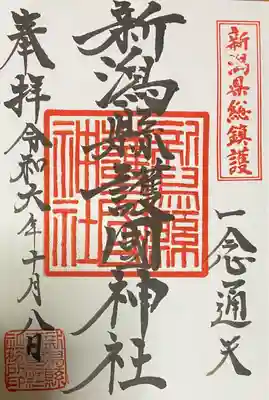 新潟県総鎮護
一念通天
新潟縣護國神社
新潟縣
護國
神社
奉拝
令和六年十月八日